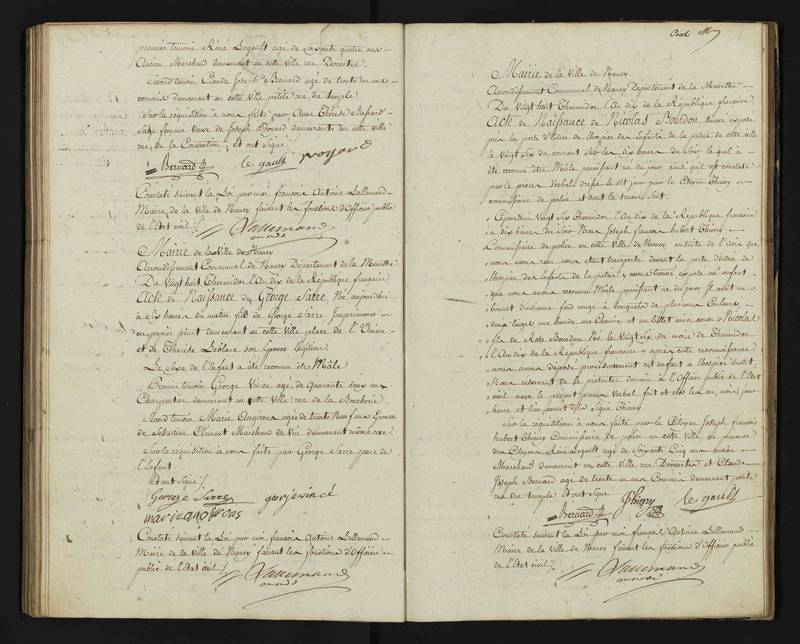 premier temoin René Legault agé de soixante quatre ans
Ancien Marchand demeurant en cette ville rue Descartes
Second temoin Claude Joseph Bernard agé de trente un ans
commis demeurant en cette ville petite rue du temple
Sur la requisition a nous faite par Anne Thérèse
femme veuve de Joseph demeurante en cette ville
rue de la Convention, Et ont Signé
Bernard le gault
Constaté suivant la Loi par moi françois Antoine Lallemand
Maire de la Ville de Nancy faisant les fonctions d'Officier public
de l'Etat civil
Lallemand
maire
Mairie de la Ville de Nancy
Arrondissement Communal de Nancy Département de la Meurthe
Du Vingt huit Thermidor L'An dix de la République française
Acte de Naissance de George Sarre Né aujourdhui
à heures du matin fils de George Sarre Imprimeur
en papier peint demeurant en cette Ville place de
et de Thérèse Leblanc son Epouse légitime.
Le Sexe de l'Enfant a été reconnu être Mâle
Premier temoin George Vincé agé de quarante deux ans
Charpentier demeurant en cette Ville rue de la Boucherie
Second temoin Marie agée de trente Neuf ans Epouse
de Sébastien Clément Marchand de Vin demeurant même rue
Sur la requisition à nous faite par George Sarre pere de
l'Enfant
Et ont signé
George Sarre gorje vincé
Constaté suivant la Loi par moi françois Antoine Lallemand
Maire de la Ville de Nancy faisant les fonctions d'Officier
public de l'Etat civil
Lallemand
maire
Cent
Mairie de la Ville de Nancy
Arrondissement Communal de Nancy Département de la Meurthe
Du Vingt huit Thermidor L'An dix de la République française
Acte de Naissance de Nicolas Bourdon trouvé exposé
près la porte d'Entrée de l'hospice des Enfants de la patrie de cette ville
le Vingt six du courant sur les dix heures du Soir, lequel a
été reconnu être Mâle paroissant né du jour ainsi qu'il est constaté
par le procès Verbal dressé le dit jour par le Citoyen Thiery
commissaire de police et dont la teneur suit
Cejourdhui Vingt six Thermidor l'An dix de la République française
à dix heures du Soir Nous Joseph françois hubert Thiery
Commissaire de police en cette Ville de Nancy ensuite de l'Avis que
nous avons reçu nous etant transporté devant la porte d'Entrée de
l'hospice des Enfants de la patrie y avons trouvé exposé un enfant
que nous avons reconnu Mâle paroissant né du jour Il avoit un
bonnet d'indienne fond rouge à bouquets de plusieurs Couleurs
deux langes une bande une Chemise et un billet ainsi conçu Nicolas
fils de Rose Bourdon Né le Vingt Six du mois de Thermidor
l'An dix de la République française, après cette reconnoissance
nous avons déposé provisoirement cet enfant à l'hospice susdit
Nous reservant de le présenter demain à l'Officier public de l'Etat
civil avec le présent procès Verbal fait et clos les an, mois, jour
heure et lieu avant dits Signé Thiery
Sur la requisition à nous faite par le Citoyen Joseph françois
hubert Thiery Commissaire de police en cette Ville En presence
des Citoyens René Legault agé de soixante Cinq ans ancien
Marchand demeurant en cette ville rue Descartes et Claude
Joseph Bernard agé de trente un ans Commis demeurant petite
rue du temple, et ont Signé
Thiery le gault
Bernard
Constaté suivant la Loi par moi françois Antoine Lallemand
Maire de la Ville de Nancy faisant les fonctions d'Officier public
de l'Etat civil
Lallemand
maire